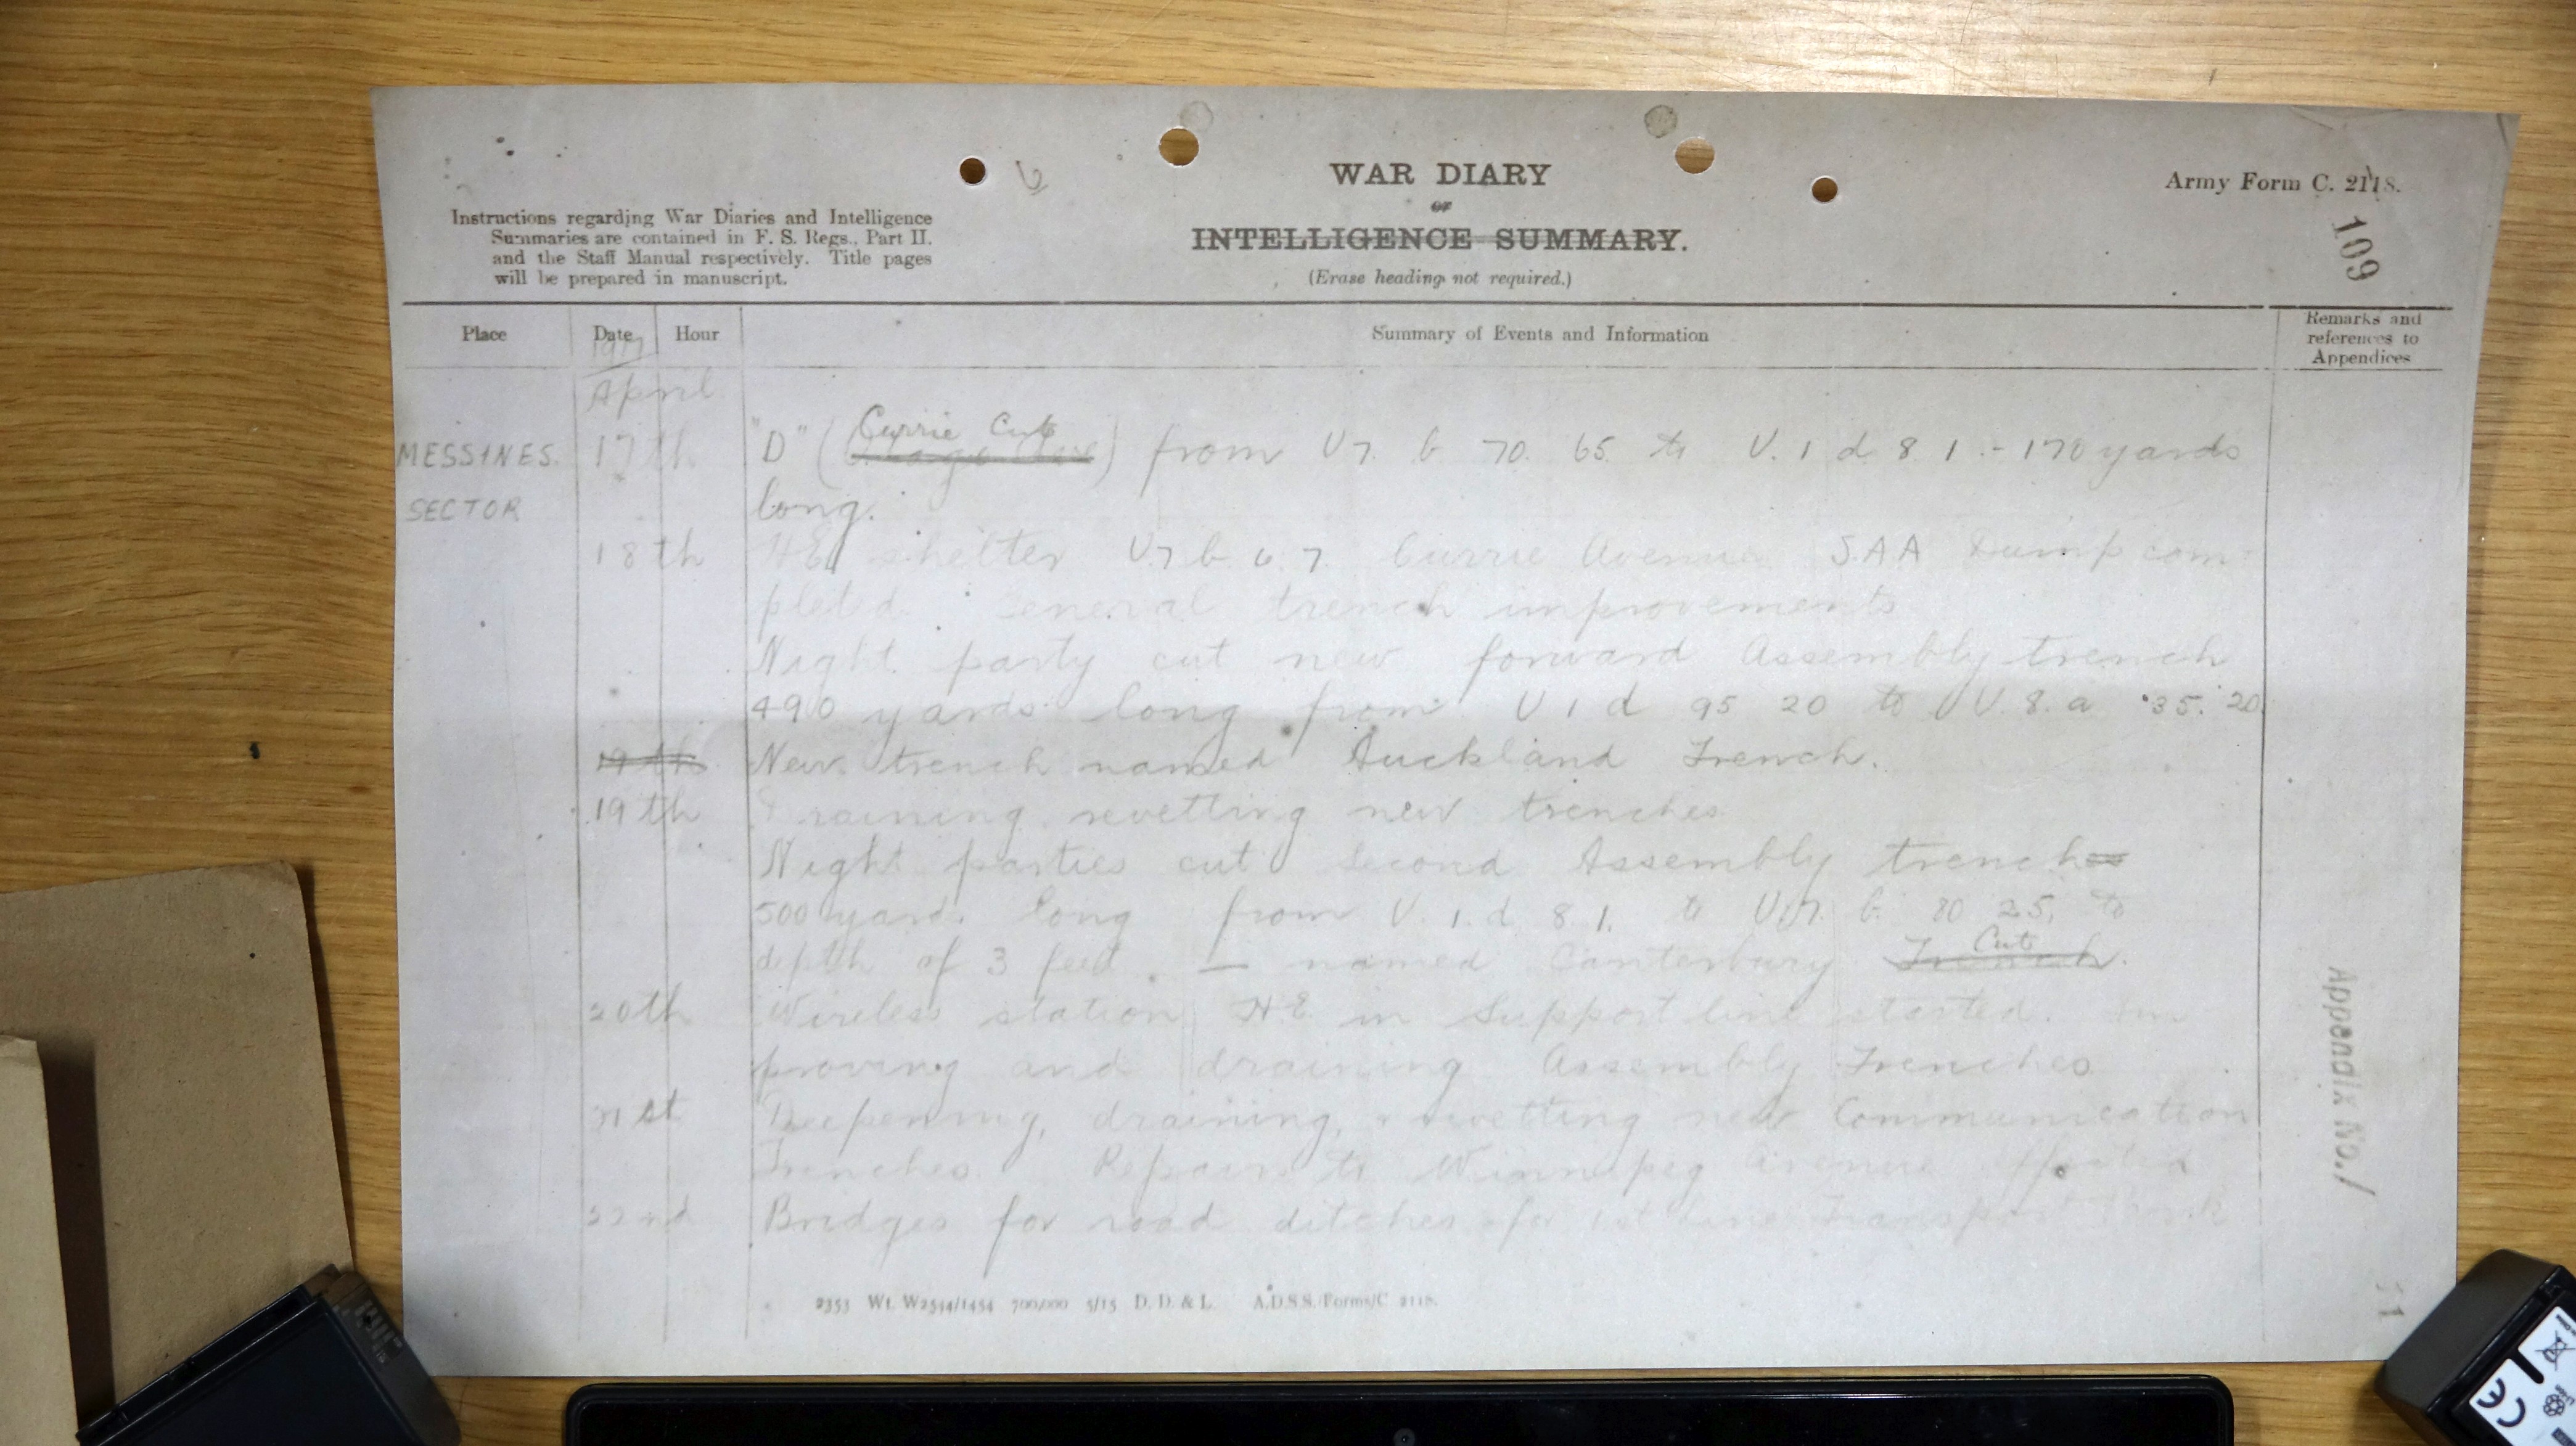 WAR DIARY
or
INTELLIGENCE SUMMARY.
(Erase heading not required.)
Army Form C. 2118.
109
Instructions regarding War Diaries and Intelligence
Summaries are contained in F. S. Regs., Part II.
and the Staff Manual respectively. Title pages
will be prepared in manuscript.
Place Date Hour Summary of Events and Information Remarks and references to Appendices
1917
April
Currie Cut
MESSINES 17th "D" ( ) from U7. b. 70. 65 to U. 1 d 8 1 - 170 yards
SECTOR long.
18th H.E. shelter U.7 b. 6. 7. Currie Avenue S.A.A Dump com-
pleted. General trench improvements
Night party cut new forward Assembly trench
490 yards long from U 1 d 95 20 to U. 8. a 35. 20
19th New trench named Auckland Trench.
19th Draining revetting new trenches
Night parties cut second Assembly trench
500 yards long from U. 1. d. 8 1. to U. 7. b. 80 25, to
depth of 3 feet. — named Canterbury Trench Cut.
20th Wireless station H.E. in Support line started. Im
proving and draining Assembly Trenches
21st Deepening, draining, revetting new Communication
Trenches. Repairs to Winnipeg Avenue effected
22nd Bridges for road ditches for 1st line Transport
Appendix No. 1
2353 Wt. W2544/1454 700,000 5/15 D. D. & L. A.D.S.S./Forms/C. 2118.